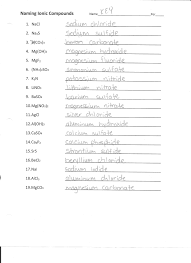 Naming Ionic Compounds Name KEY
1. NaCl sodium chloride
2. Na₂S sodium sulfide
carbonate
magnesium hydroxide
5. MgF₂ magnesium fluoride
6. (NH₄)₂SO₄ ammonium sulfate
7. K₃N potassium nitride
8. LiNO₃ lithium nitrate
9. BaSO₄ barium sulfate
10.Mg(NO₃)₂ magnesium nitrate
11.AgCl silver chloride
12.Al(OH)₃ aluminum hydroxide
13.CaSO₄ calcium sulfate
14.Ca₃P₂ calcium phosphide
15.SrS strontium sulfide
16.BeCl₂ chloride
17.NaI sodium iodide
aluminum chloride
19.MgCO₃ magnesium carbonate